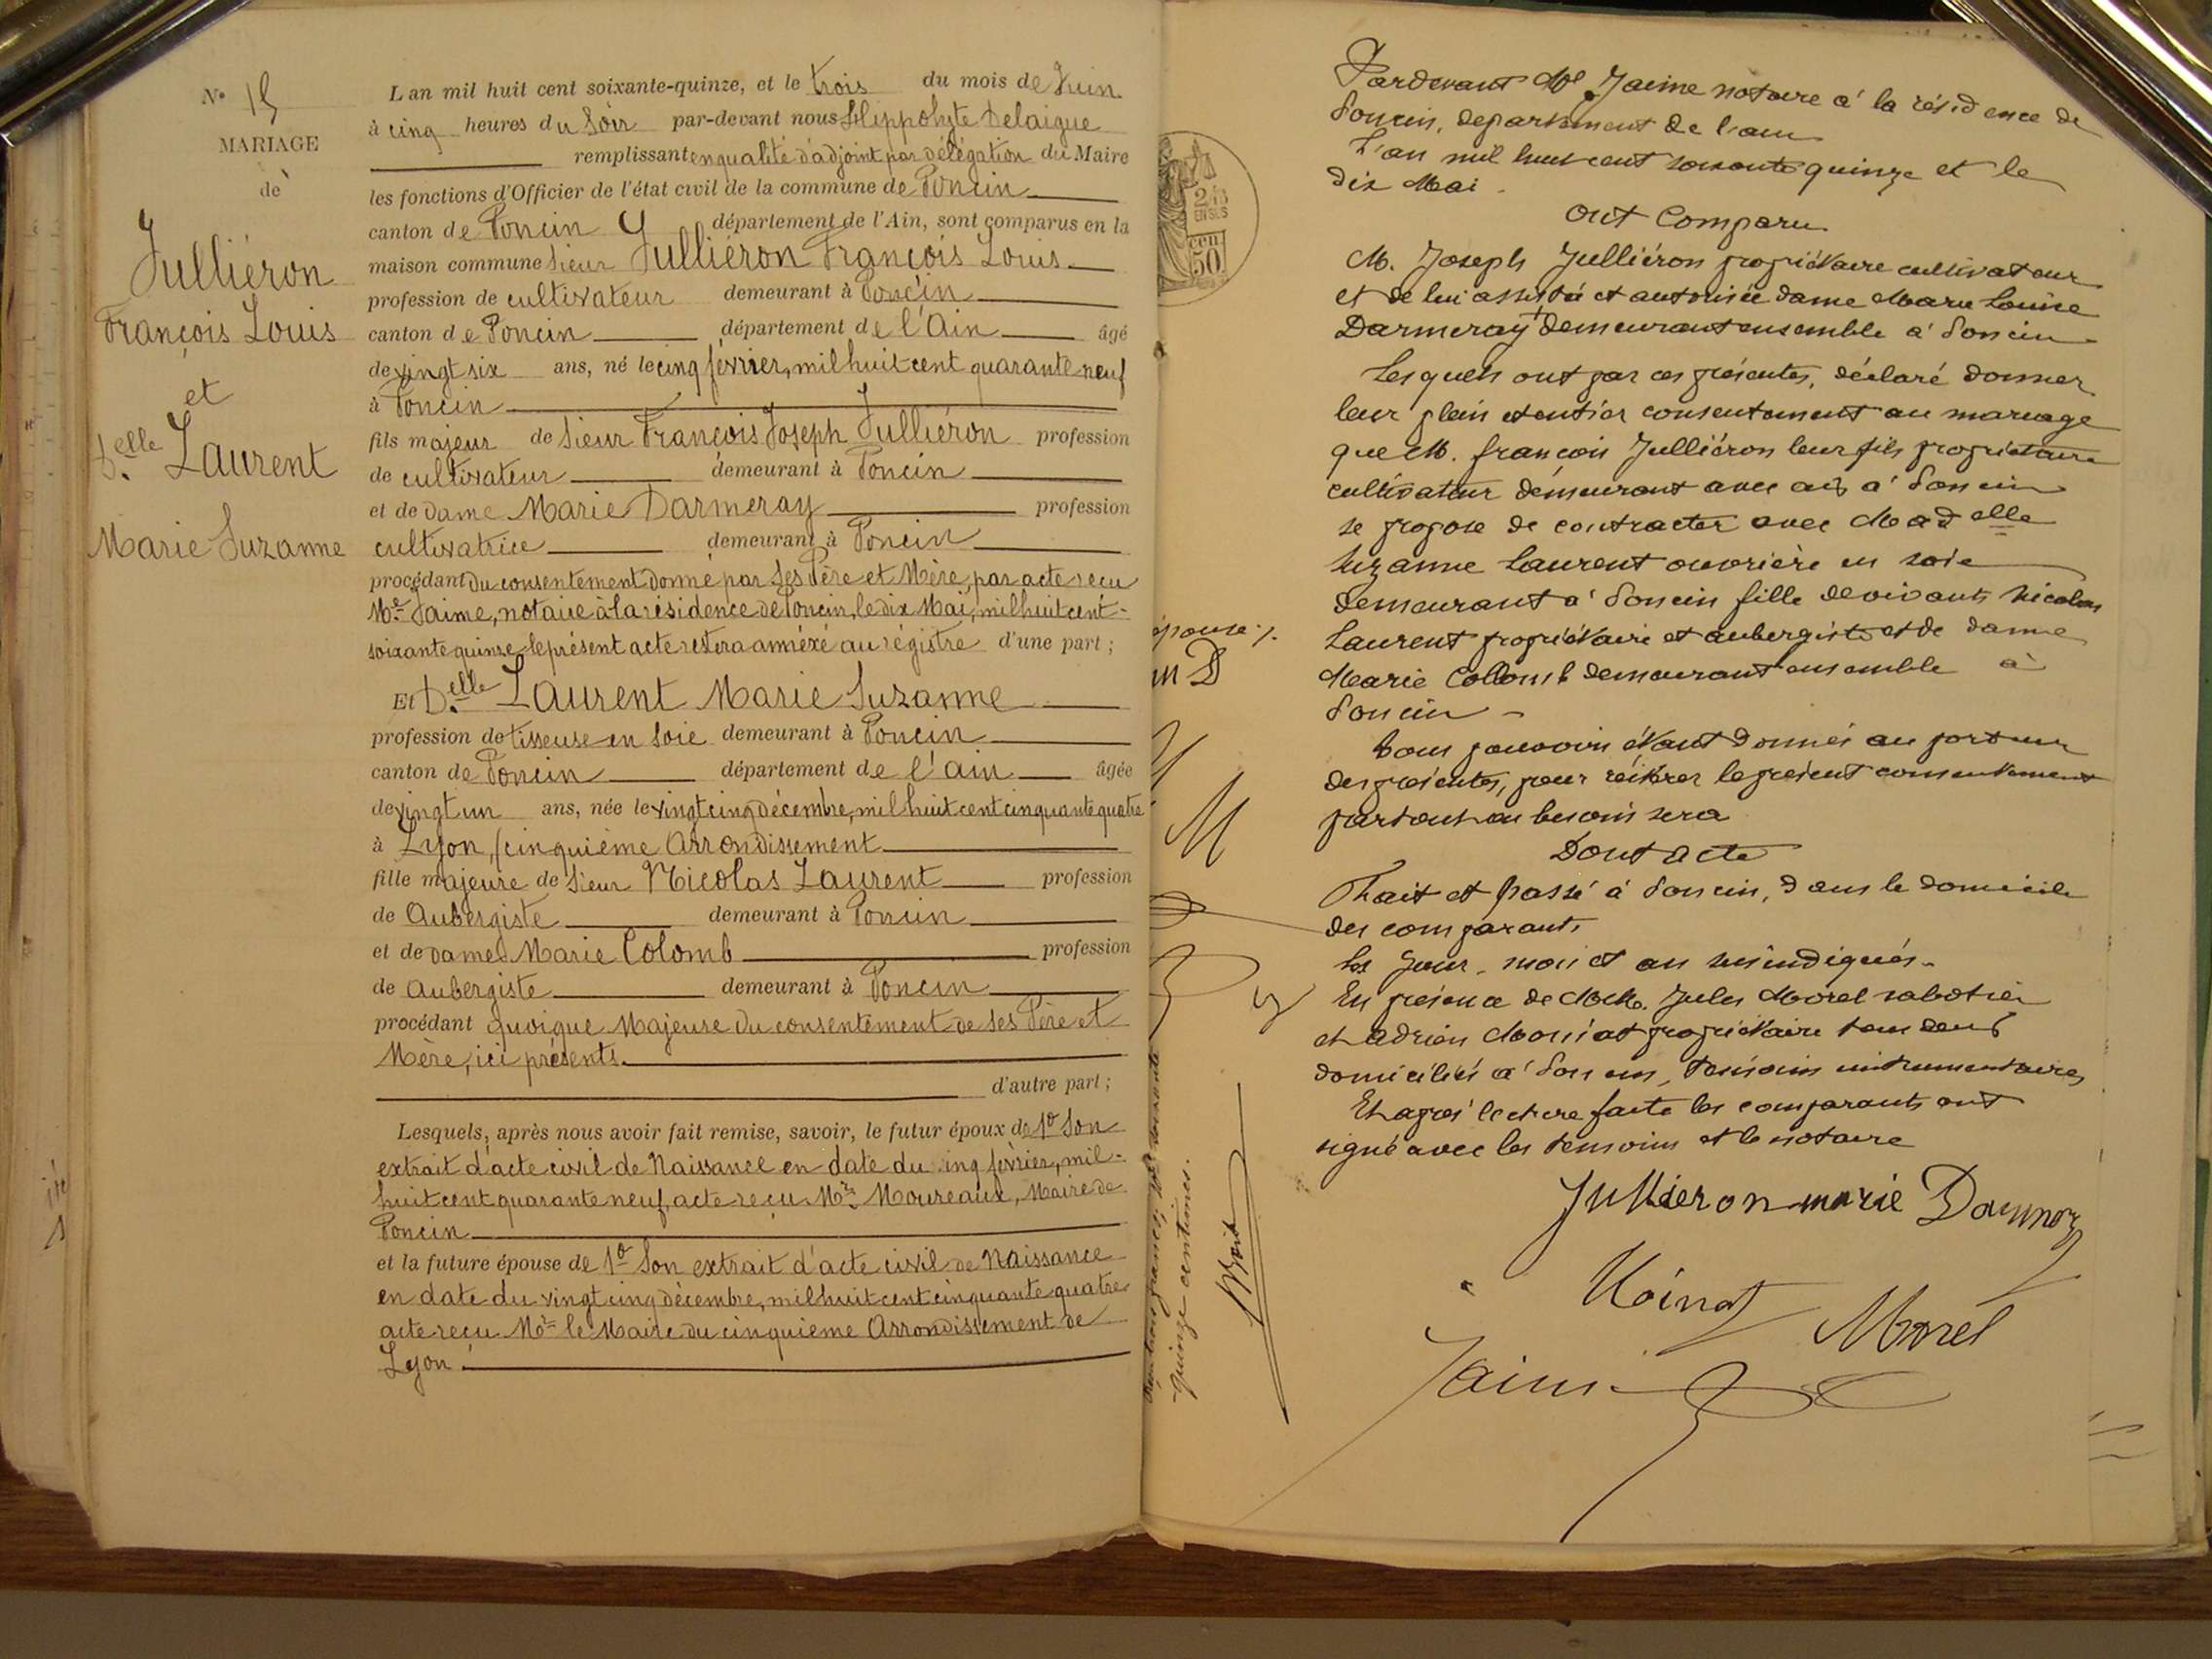 N° 15
MARIAGE
de
Julliéron
François Louis
et
D.elle Laurent
Marie Suzanne
L an mil huit cent soixante-quinze, et le trois du mois de Juin
à cinq heures du Soir par-devant nous Hippolyte Delaigue
remplissant en qualité d'adjoint par délégation du Maire
les fonctions d'Officier de l'état civil de la commune de Poncin
canton de Poncin département de l'Ain, sont comparus en la
maison commune Sieur Julliéron François Louis
profession de cultivateur demeurant à Poncin
canton de Poncin département de l'Ain âgé
de vingt six ans, né le cinq février, mil huit cent quarante neuf
à Poncin
fils majeur de Sieur François Joseph Julliéron profession
de cultivateur demeurant à Poncin
et de Dame Marie Darmeray profession
cultivatrice demeurant à Poncin
procédant du consentement donné par ses Père et Mère, par acte reçu
Me Jaime, notaire à la résidence de Poncin, le dix Mai, mil huit cent-
soixante quinze le présent acte restera annéxé au régistre d'une part ;
Et D.elle Laurent Marie Suzanne
profession de tisseuse en Soie demeurant à Poncin
canton de Poncin département de l'ain âgée
de vingt un ans, née le vingt cinq décembre, mil huit cent cinquante quatre
à Lyon, (cinquième Arrondissement
fille majeure de Sieur Nicolas Laurent profession
de Aubergiste demeurant à Poncin
et de Dame Marie Colomb profession
de Aubergiste demeurant à Poncin
procédant quoique Majeuse du consentement de ses Père et
Mère, ici présents.
d'autre part ;
Lesquels, après nous avoir fait remise, savoir, le futur époux de 1° Son
extrait d'acte civil de Naissance en date du cinq février, mil-
huit cent quarante neuf, acte reçu Mr. Moureaux, Maire de
Poncin
et la future épouse de 1° Son extrait d'acte civil de Naissance
en date du vingt cinq décembre, mil huit cent cinquante quatre
acte reçu Mr le Maire du cinquième Arrondissement de
Lyon.
épouse ./.
quinze centimes.
Pardevant Me Jaime notaire à la résidence de
Poncin, departement de l'ain
L'an mil huit cent soixante quinze et le
dix Mai
Ont Comparu
M. Joseph Julliéron propriétaire cultivateur
et de lui assistée et autorisée dame Marie Louise
Darmeray demeurant ensemble à Poncin
Lesquels ont par ces présentes, déclaré donner
leur plein et entier consentement au mariage
que M. françois Julliéron leur fils propriétaire
cultivateur demeurant avec eux à Poncin
se propose de contracter avec Madelle
Suzanne Laurent ouvrière en soie
demeurant à Poncin fille de vivants Nicolas
Laurent propriétaire et aubergiste et de dame
Marie Collomb demeurant ensemble à
Poncin -
Tous pouvoirs étant donnés au porteur
des présentes, pour réitérer le présent consentement
partout ou besoin sera
Dont acte
Fait et passé à Poncin, dans le domicile
des comparants
Les Jour, mois et an susindiqués.
En présence de MM. Jules Morel sabotier
et Adrien Moinat propriétaire tous deux
domiciliés à Poncin, témoins instrumentaires
Et après lecture faite les comparants ont
signé avec les témoins et le notaire
Jullieron marie Darmeray
Moinat
Morel
Jaime